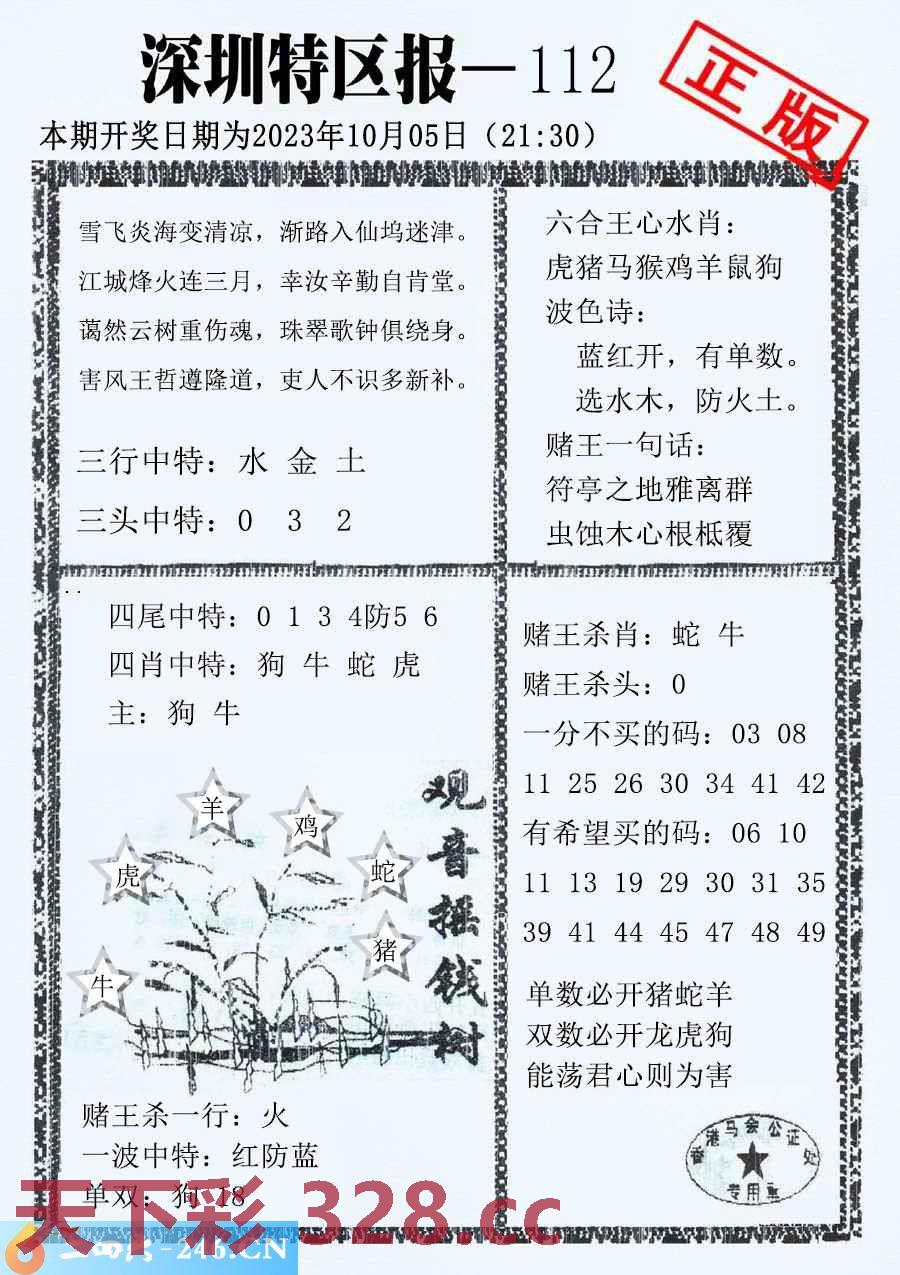 深圳特区报—112
正版
本期开奖日期为2023年10月05日（21:30）
雪飞炎海变清凉，渐路入仙坞迷津。
江城烽火连三月，幸汝辛勤自肯堂。
蔼然云树重伤魂，珠翠歌钟俱绕身。
害风王哲遵隆道，吏人不识多新补。
三行中特：水 金 土
三头中特：0 3 2
六合王心水肖：
虎猪马猴鸡羊鼠狗
波色诗：
蓝红开，有单数。
选水木，防火土。
赌王一句话：
符亭之地雅离群
虫蚀木心根柢覆
四尾中特：0 1 3 4防5 6
四肖中特：狗 牛 蛇 虎
主：狗 牛
羊
鸡
虎
蛇
猪
牛
观音摇钱树
赌王杀一行：火
一波中特：红防蓝
单双：狗 18
赌王杀肖：蛇 牛
赌王杀头：0
一分不买的码：03 08
11 25 26 30 34 41 42
有希望买的码：06 10
11 13 19 29 30 31 35
39 41 44 45 47 48 49
单数必开猪蛇羊
双数必开龙虎狗
能荡君心则为害
香港马会公证处
专用章
天下彩 328.cc
-246.CN